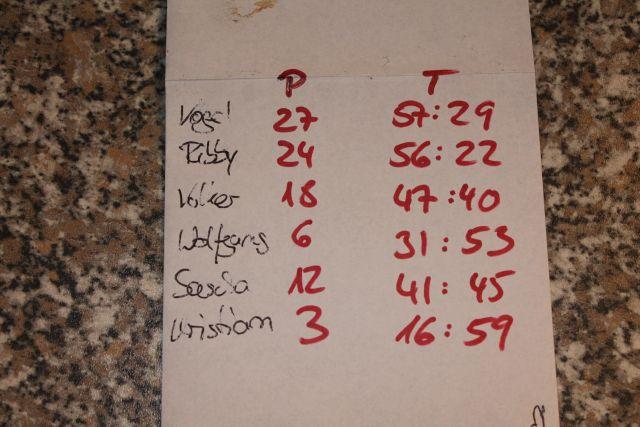 P T
Vogel 27 57:29
Ribby 24 56:22
Volker 18 47:40
Wolfgang 6 31:53
Sascha 12 41:45
Kristian 3 16:59